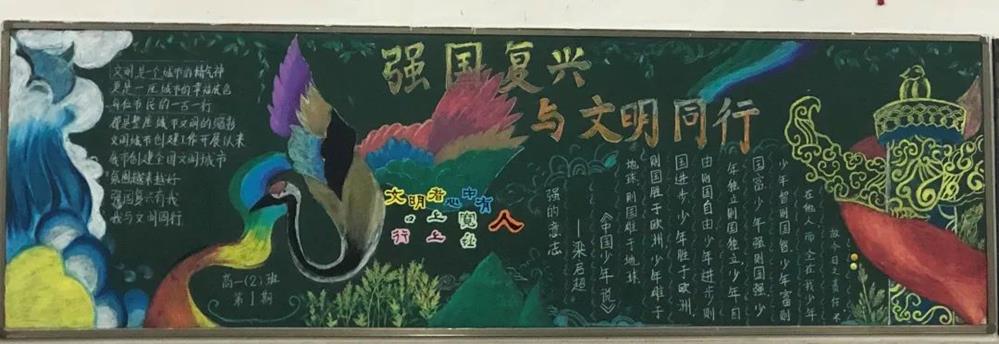 强国复兴
与文明同行
文明是一个城市的精气神
更是一座城市的幸福底色
每位市民的一言一行
都是整座城市文明的缩影
文明城市创建工作开展以来
我市创建全国文明城市
氛围越来越好
强国复兴有我
我与文明同行
高一(2)班
第1期
文明者心中有人
口上宽
行上
故今日之责任 不
在他人 而全在我少年
少年智则国智 少年富则
国富 少年强则国强 少
年独立则国独立 少年自
由则国自由 少年进步则
国进步 少年胜于欧洲
则国胜于欧洲 少年雄于
地球 则国雄于地球
《中国少年说》
——梁启超
强的意志